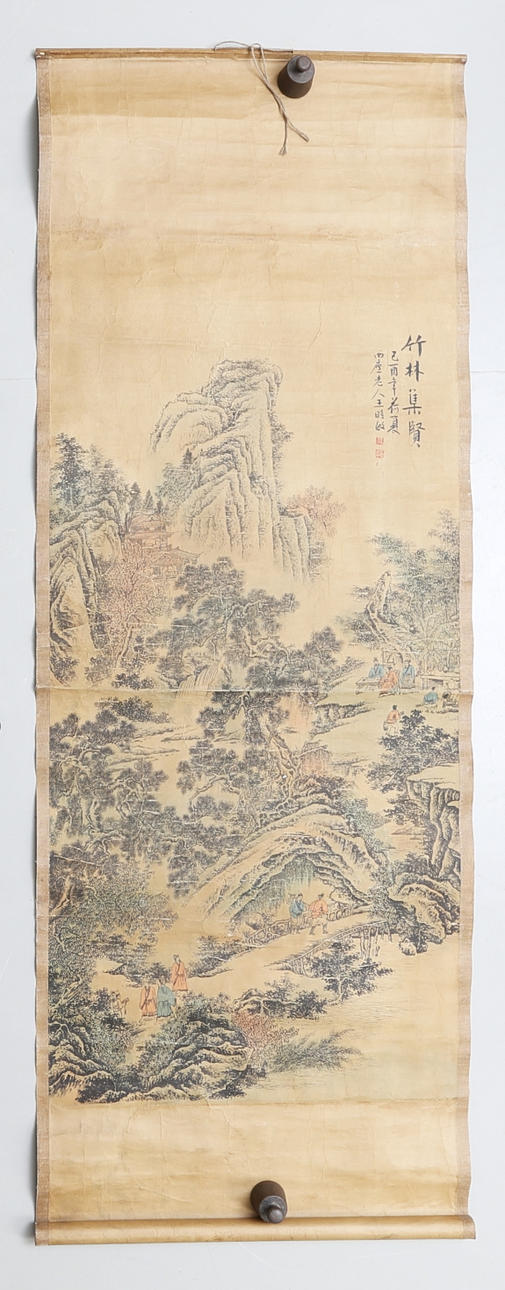 竹林集賢
己酉年荷夏
西廬老人王時敏